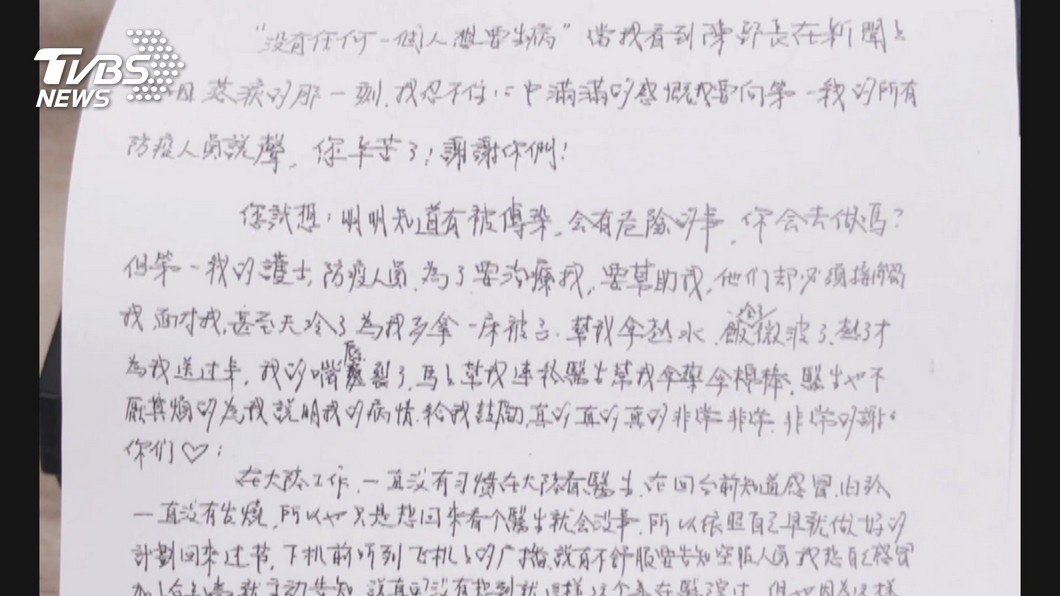 TVBS
NEWS
“沒有任何一個人想要生病”當我看到陳部長在新聞上
落淚的那一刻,我忍不住心中滿滿的感慨想要向第一我的所有
防疫人員說聲,你辛苦了!謝謝你們!
您試想:明明知道有被傳染,会有危險的事,你会去做嗎?
但第一我的護士,防疫人員,為了要治療我,要幫助我,他们却必須接觸
我面对我,甚至天冷了為我多拿一床被子,幫我拿热水,飯微波了热了才
為我送过來,我的嘴唇裂了,馬上幫我連絡醫生幫我拿藥拿棉棒,醫生也不
厭其煩的為我說明我的病情,給我鼓勵,真的真的真的非常非常,非常的謝
你们♡:
在大陸工作,一直沒有习慣在大陸看醫生,在回台前知道感冒,由於
一直沒有发燒,所以也只是想回來看个醫生就会沒事,所以依照自己早就做好的
計劃回來过节,下机前听到飞机上的广播,說有不舒服要告知空服人員我想自己感冒